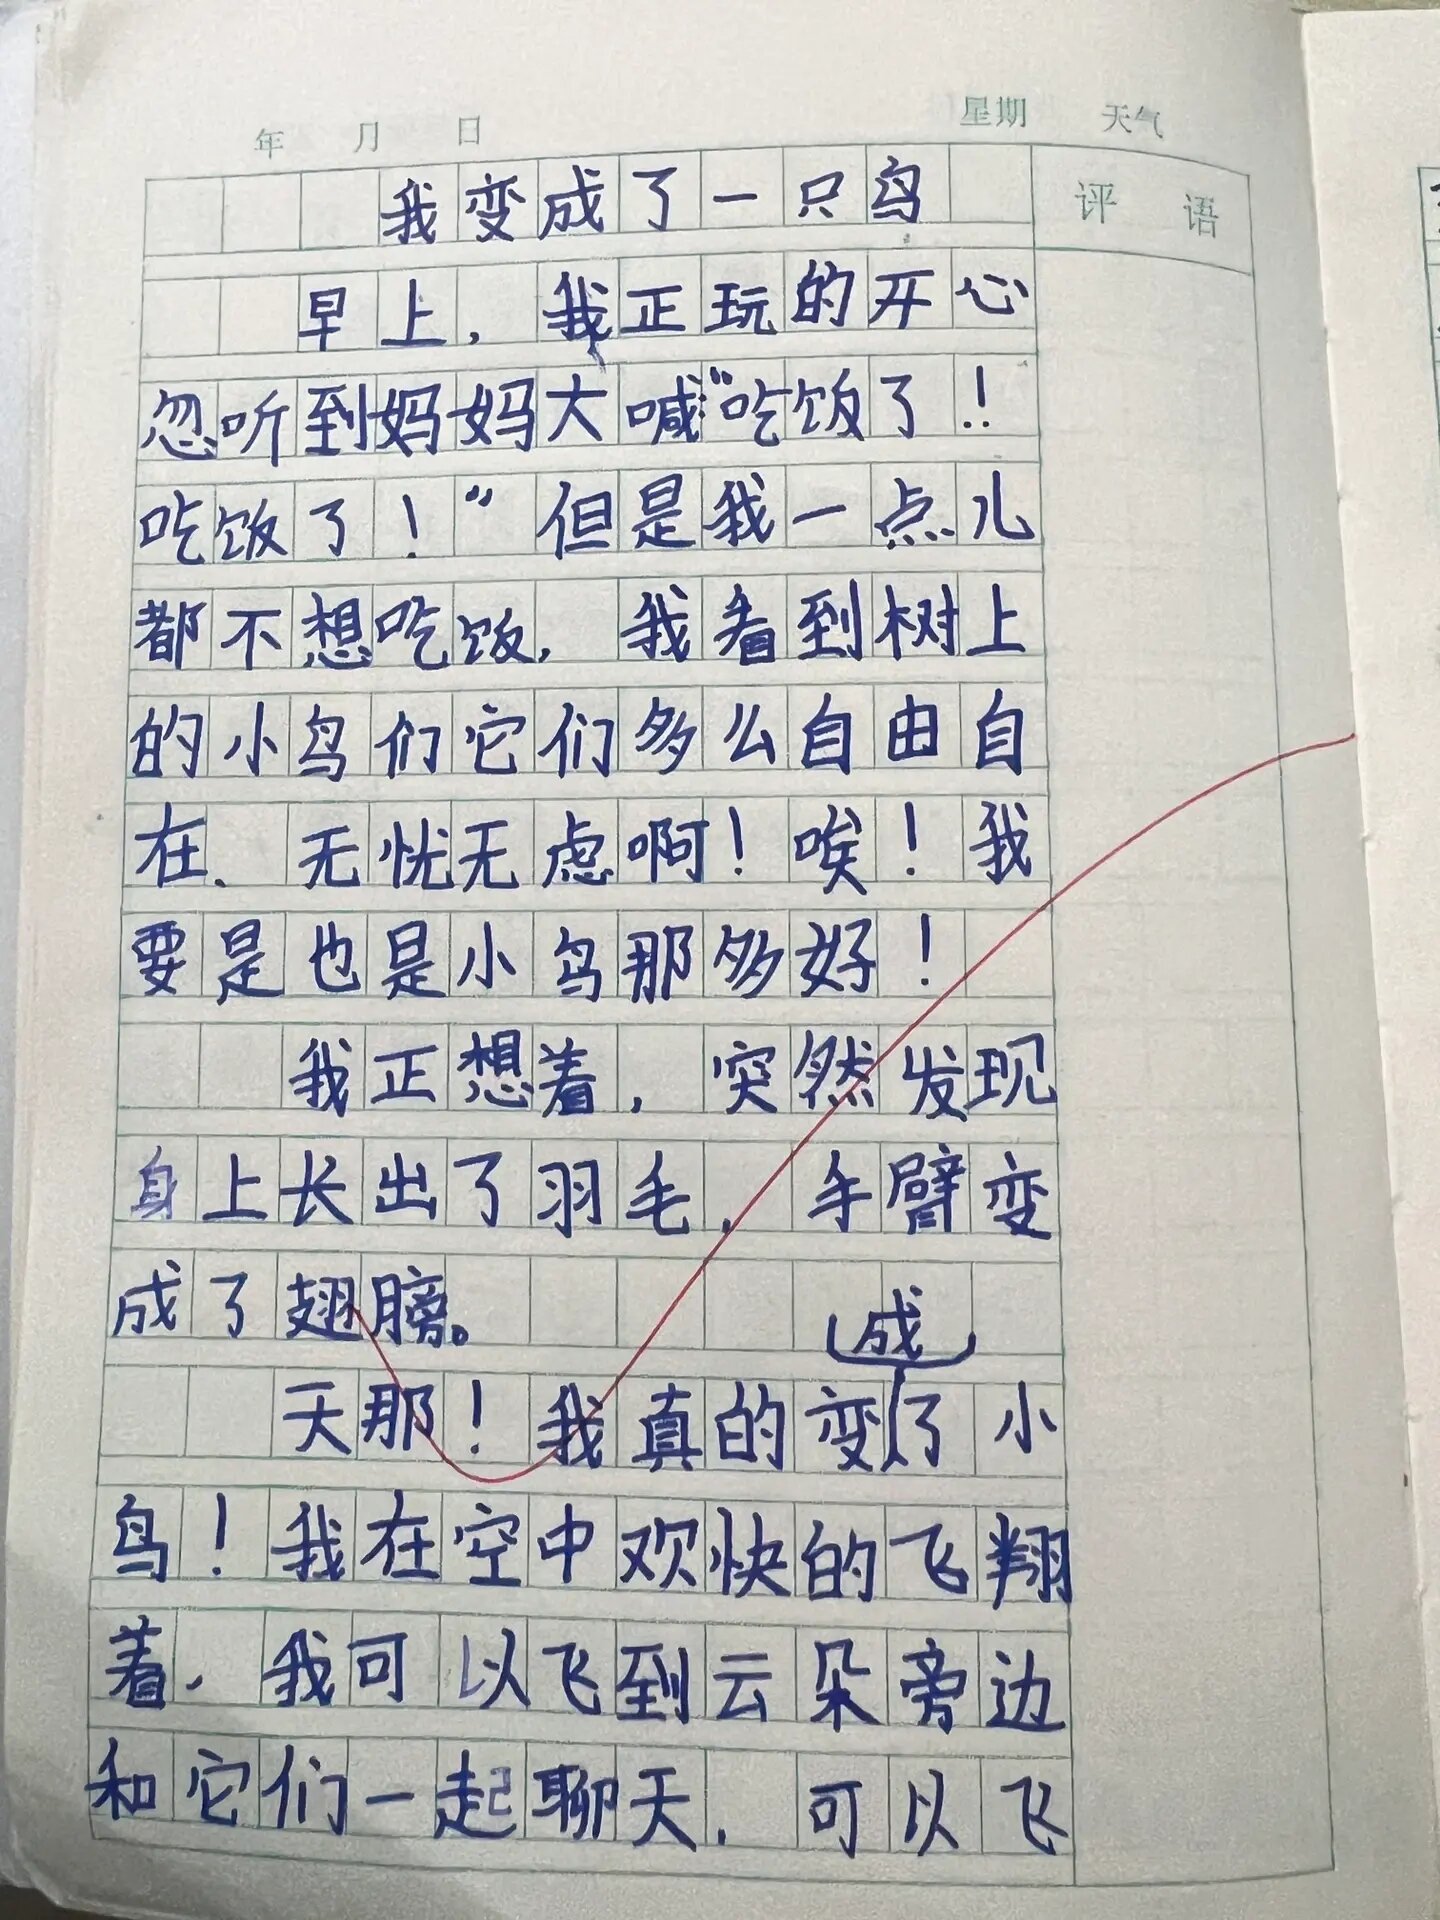 年 月 日 星期 天气
我变成了一只鸟
评 语
早上，我正玩的开心
忽听到妈妈大喊“吃饭了！
吃饭了！”但是我一点儿
都不想吃饭，我看到树上
的小鸟们它们多么自由自
在、无忧无虑啊！唉！我
要是也是小鸟那多好！
我正想着，突然发现
身上长出了羽毛，手臂变
成了翅膀。
成
天那！我真的变了小
鸟！我在空中欢快的飞翔
着，我可以飞到云朵旁边
和它们一起聊天，可以飞